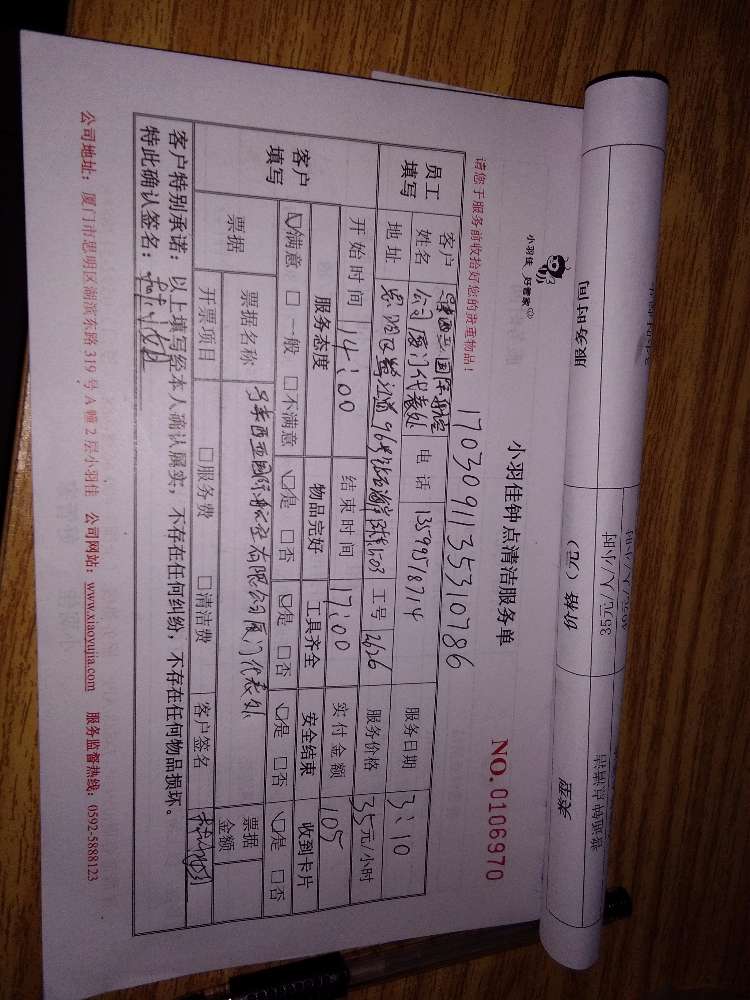 小羽佳 好管家
小羽佳钟点清洁服务单
NO.0106970
请您于服务前收拾好您的贵重物品!
1703091135310786
员工填写
客户姓名 马来西亚国际航空公司厦门代表处 电话 13599518714 服务日期 3:10
地址 思明区鹭江道96号 1503 工号 2626 服务价格 35元/小时
开始时间 14:00 结束时间 17:00 实付金额 105
客户填写
服务态度 物品完好 工具齐全 安全结束 收到卡片
☑满意 □一般 □不满意 ☑是 □否 ☑是 □否 ☑是 □否 ☑是 □否
票据 票据名称 马来西亚国际航空有限公司厦门代表处 票据金额
开票项目 □服务费 □清洁费 客户签名
客户特别承诺:以上填写经本人确认属实,不存在任何纠纷,不存在任何物品损坏。
特此确认签名:
公司地址:厦门市思明区湖滨东路319号A幢2层小羽佳 公司网站:www.xiaoyujia.com 服务监督热线:0592-5888123
服务时间
价格(元)
35元/人/小时